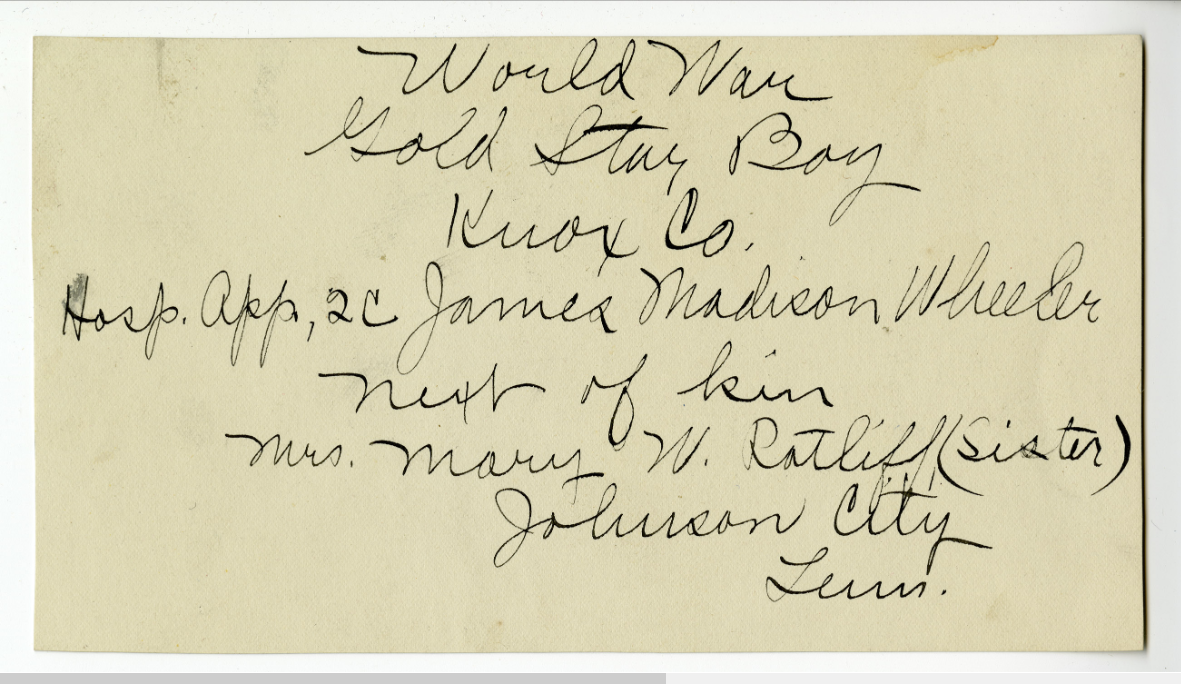 World War
Gold Star Boy
Knox Co.
Hosp. App, 2C James Madison Wheeler
Next of kin
Mrs. Mary W. Ratliff (Sister)
Johnson City
Tenn.